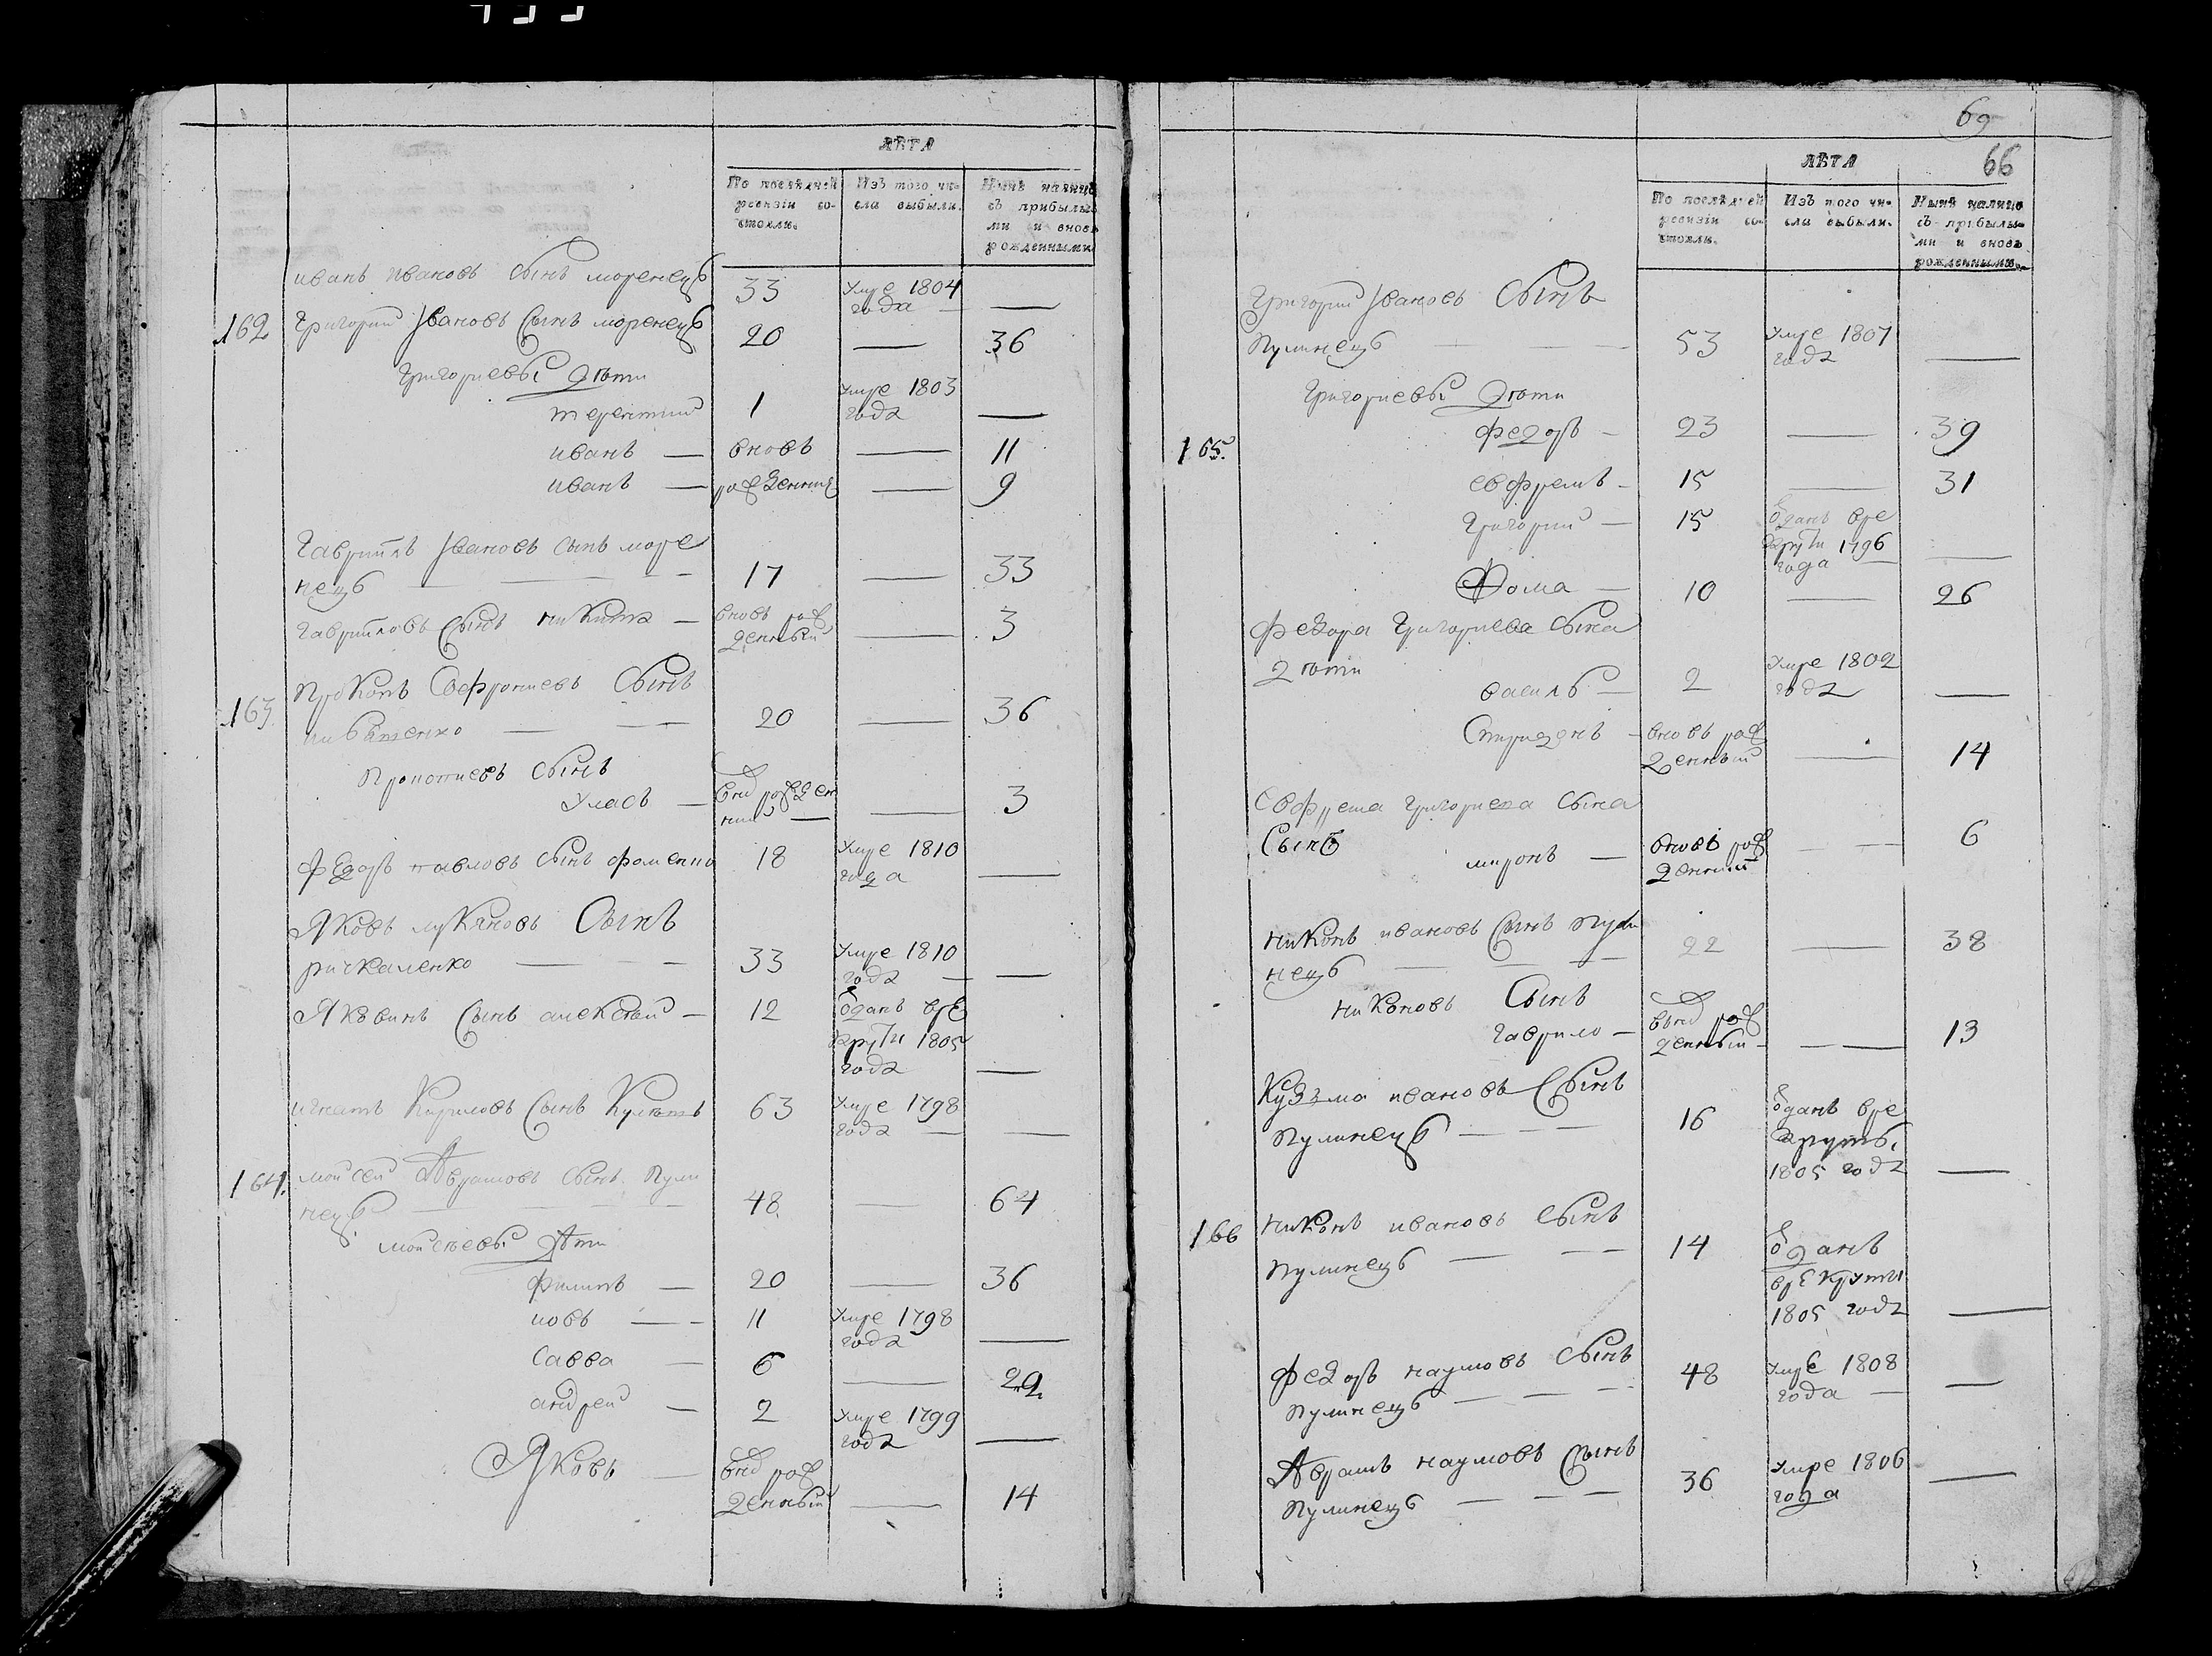 ЛѢТА
По послѣдней Изъ того чи- Нынѣ налицо
ревизіи со- сла выбыли. съ прибылы-
стояли. ми и вновь
рожденными
иванъ ивановъ Сынъ моренецъ 33 Умре 1804
года —
162 Григорий Ивановъ Сынъ моренецъ 20 — 36
Григориевы Дѣти
терентий 1 Умре 1803
года —
иванъ — вновь — 11
иванъ — рожденния — 9
Гаврилъ Ивановъ Сынъ море
нецъ — 17 — 33
Гавриловъ Сынъ никита — вновь рож
денный — 3
163 Прокопъ Софрониевъ Сынъ
— 20 — 36
Сынъ
Уласъ — вно рожден
ний — 3
Федоръ павловъ Сынъ фоменко 18 Умре 1810
года —
Яковъ лукяновъ Сынъ
ричкаленко — 33 Умре 1810
года —
Яковинъ Сынъ алексѣй — 12 одань вре
крути 1805
года —
игнатъ Кириловъ Сынъ 63 Умре 1798
года —
164. мойсей Аврамовъ Сынъ Пули
нецъ — 48 — 64
мойсѣевы Дѣти
филипъ — 20 — 36
иовъ — 11 Умре 1798
года —
Савва — 6 — 22
андрей — 2 Умре 1799
года —
Яковъ — вно рож
денный — 14
69
66
ЛѢТА
По послѣдней Изъ того чи- Нынѣ налицо
ревизіи со- сла выбыли. съ прибылы-
стояли. ми и вновь
рожденными.
Григорий Ивановъ Сынъ
Пулинецъ — 53 Умре 1807
года —
Григориевы Дѣти
165. федоръ — 23 — 39
евфремъ — 15 — 31
Григорий — 15 одань вре
крути 1796
года —
Фома — 10 — 26
федора Григориева Сына
дѣти
василь — 2 Умре 1802
года —
Спиридонъ — вновъ рож
денный — 14
Евфрема григориева Сына
Сынъ
миронъ — вновъ рож
денный — 6
никонъ ивановъ Сынъ пули
нецъ — 22 — 38
никоновъ Сынъ
гаврило — вьно рож
денный — 13
Кузма ивановъ Сынъ
Пулинецъ — 16 одань вре
крутъ
1805 года —
166 никонъ ивановъ Сынъ
пулинецъ — 14 одань
врекруты
1805 года —
федоръ наумовъ Сынъ
Пулинецъ — 48 Умре 1808
года —
Аврамъ наумовъ Сынъ
Пулинецъ — 36 Умре 1806
года —